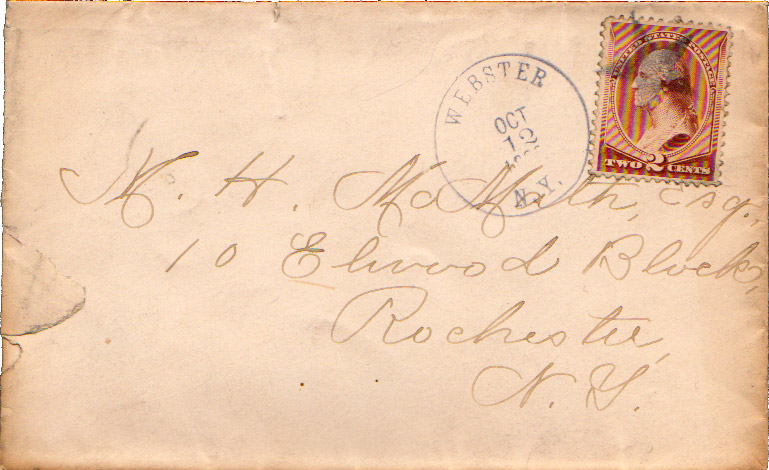 WEBSTER
OCT
12
N.Y.
UNITED STATES POSTAGE
TWO 2 CENTS
M. H. McMath, Esq.,
10 Elwood Block,
Rochester,
N. Y.